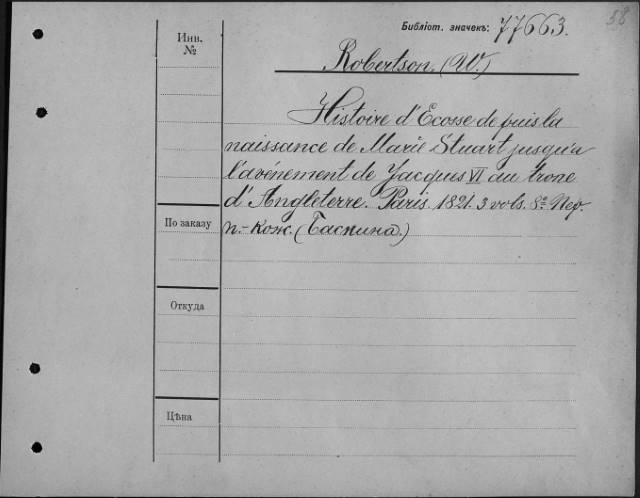 58
Библіот. значекъ: 77663.
Инв.
№
Robertson. (W.)
Histoire d'Ecosse depuis la
naissance de Marie Stuart jusqu'a
l'avénement de Jacques VI au trone
d'Angleterre. Paris 1821. 3 vols. 8º Пер.
п.-кож. (Баспина.)
По заказу
Откуда
Цѣна